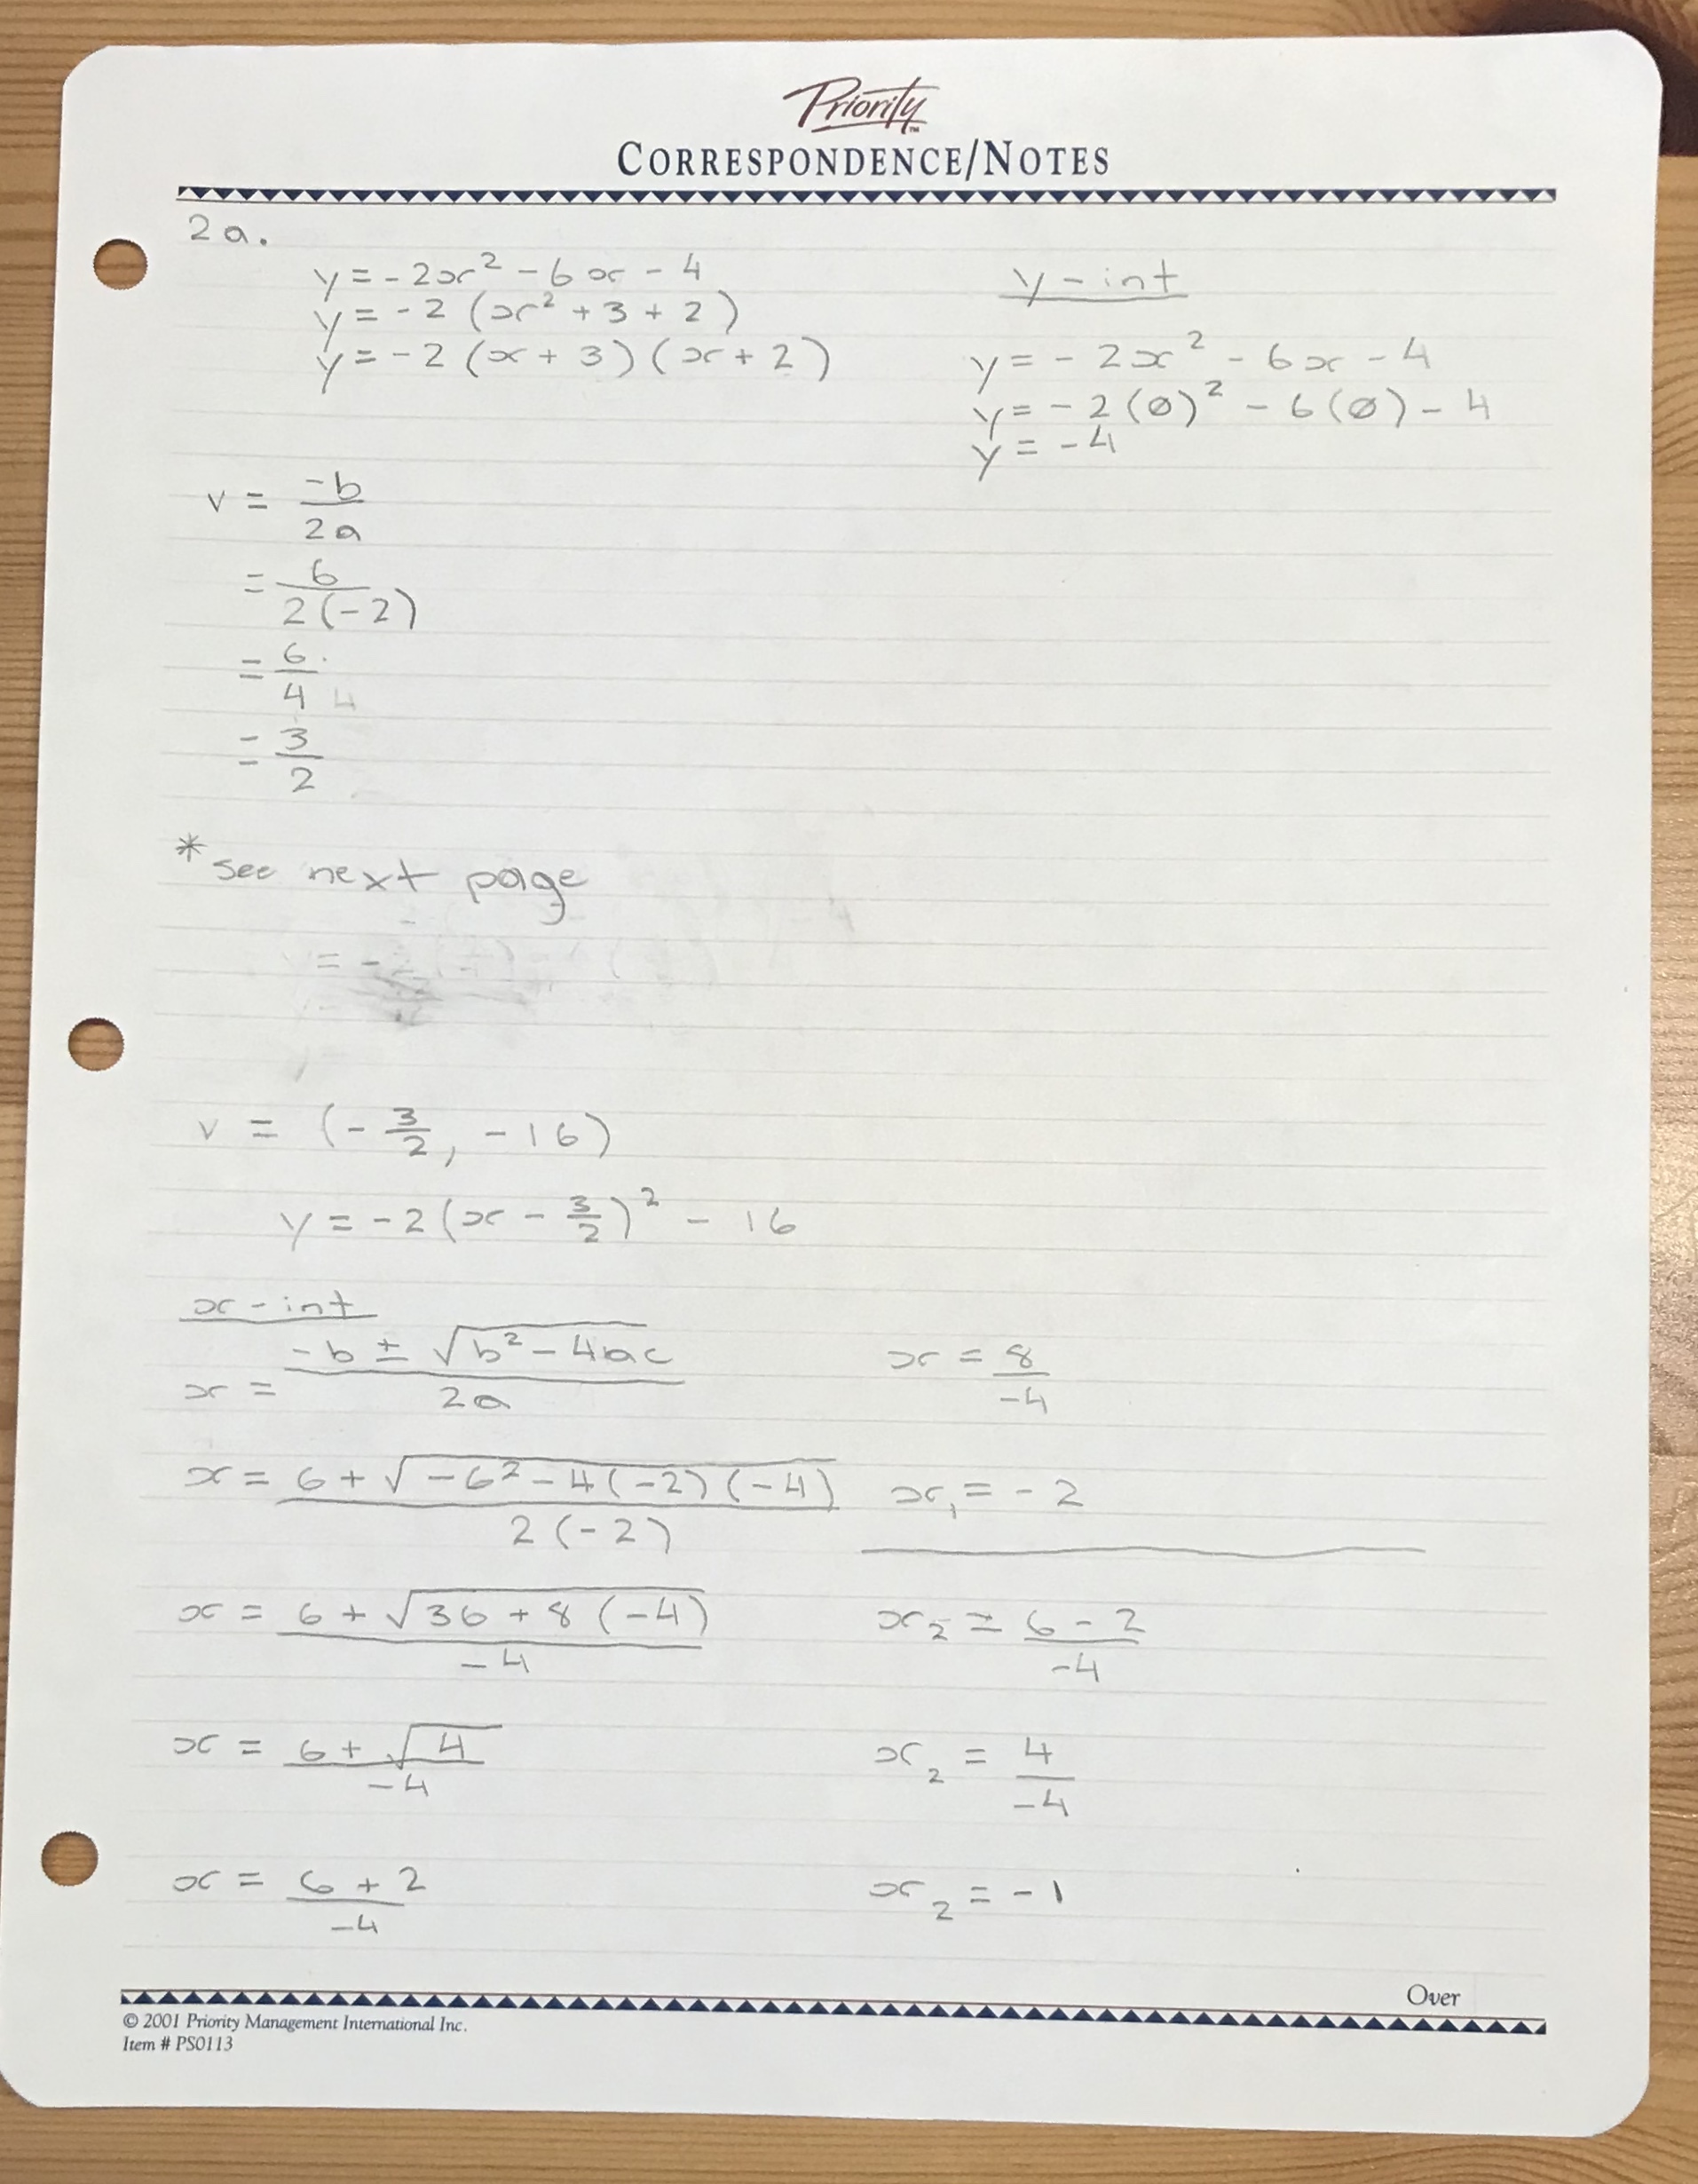 Priority™
CORRESPONDENCE/NOTES
2a.
y = -2x² - 6x - 4
y = -2 (x² + 3 + 2)
y = -2 (x + 3)(x + 2)
y-int
y = -2x² - 6x - 4
y = -2(0)² - 6(0) - 4
y = -4
v = -b / 2a
= 6 / 2(-2)
= 6 / 4 4
= 3 / 2
* see next page
v = (-3/2, -16)
y = -2(x - 3/2)² - 16
x-int
x = -b ± √b² - 4ac / 2a
x = 6 + √-6² - 4(-2)(-4) / 2(-2)
x = 6 + √36 + 8(-4) / -4
x = 6 + √4 / -4
x = 6 + 2 / -4
x = 8 / -4
x₁ = -2
x₂ = 6 - 2 / -4
x₂ = 4 / -4
x₂ = -1
Over
© 2001 Priority Management International Inc.
Item # PS0113